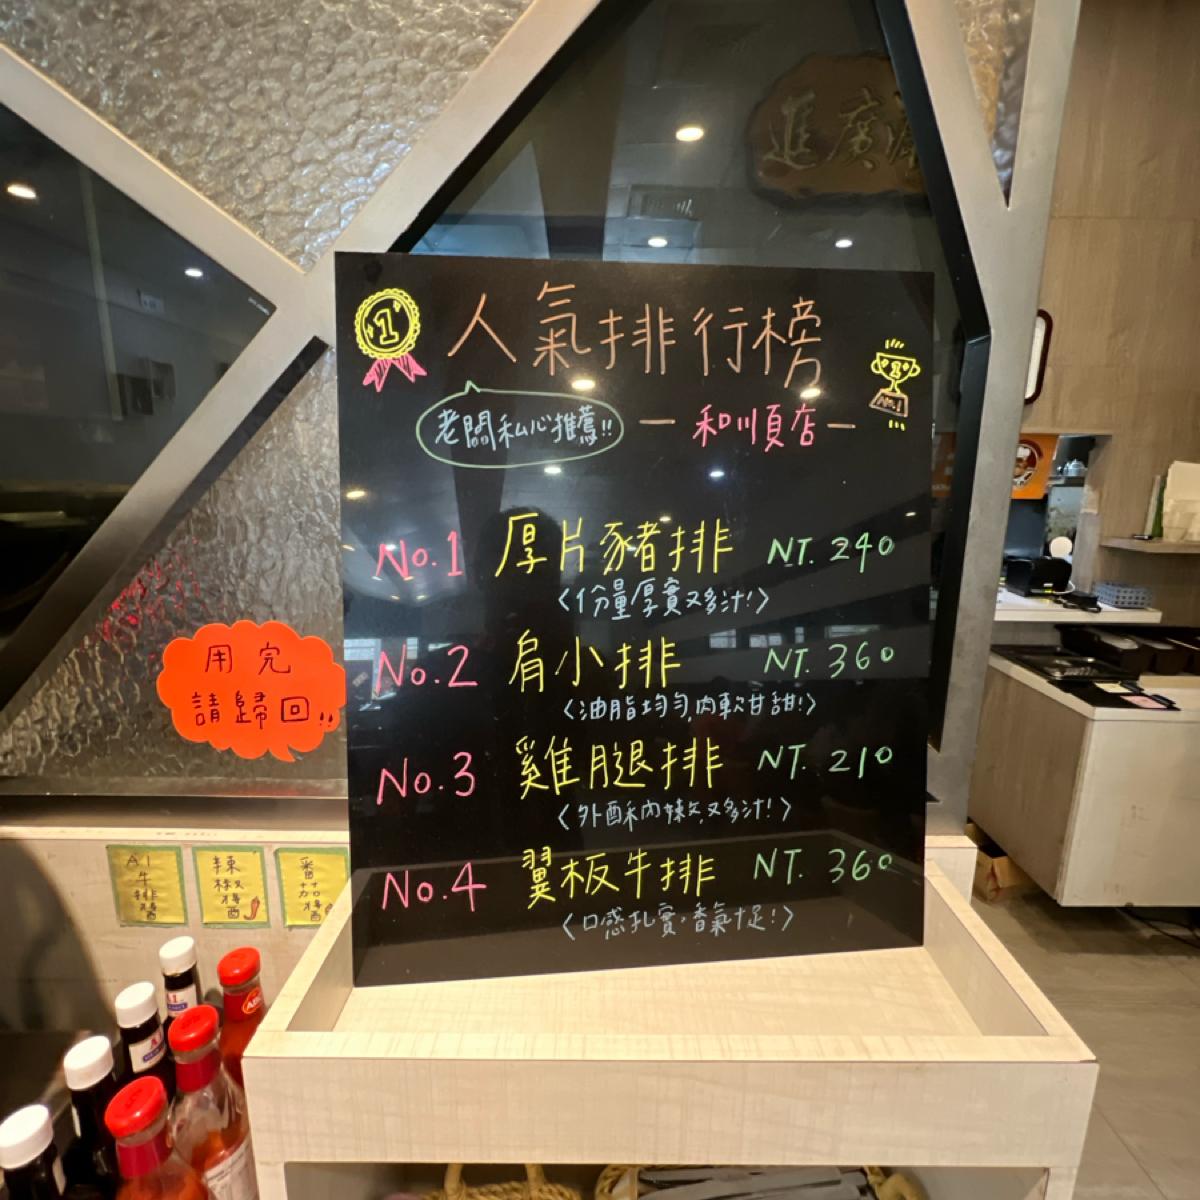 進廣源
1
人氣排行榜
1
No.1
老闆私心推薦!!
— 和順店 —
No.1 厚片豬排 NT. 240
〈份量厚實又多汁!〉
No.2 肩小排 NT. 360
〈油脂均勻,肉軟甘甜!〉
No.3 雞腿排 NT. 210
〈外酥內嫩又多汁!〉
No.4 翼板牛排 NT. 360
〈口感扎實,香氣十足!〉
用完
請歸回!!
A1牛排醬
辣椒醬
番茄醬
A1